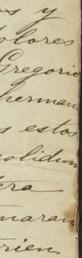 os y
dolores
Gregorio
herman
s estos
solidum
tera
maran
trien